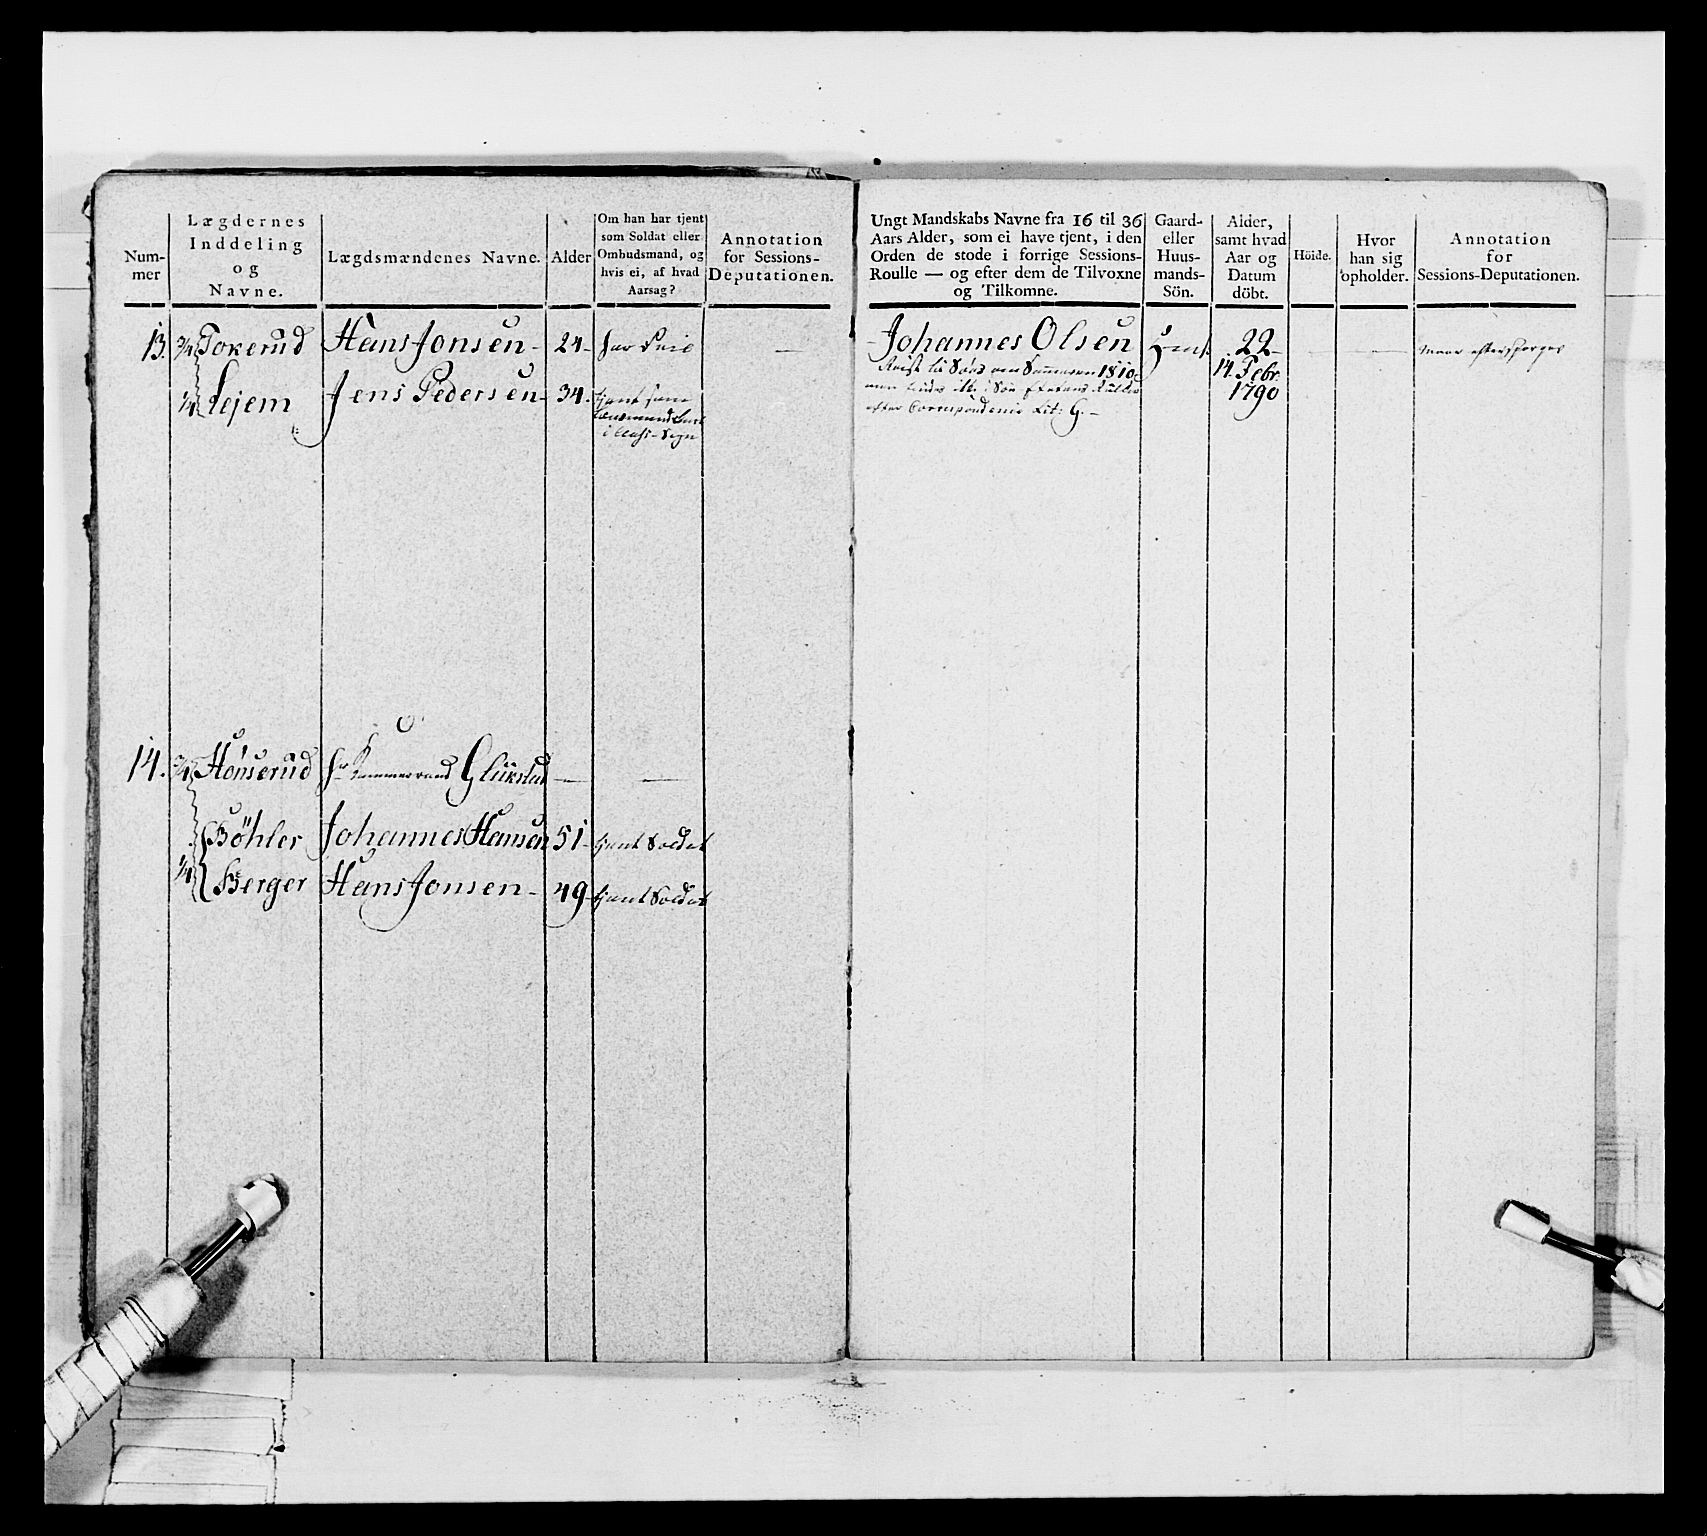 Num-
mer
Lægdernes
Inddeling
og
Navne.
Lægdsmændenes Navne.
Alder
Om han har tjent
som Soldat eller
Ombudsmand, og
hvis ei, af hvad
Aarsag?
Annotation
for Sessions-
Deputationen.
13. 3/4 Tokerud Hans Jonsen- 24- har —
1/4 Lejem Jens Pedersen- 34- tjent som
14. 3/4 Hönserud Hr Kammerraad Glükstad — —
Böhler Johannes Hansen 51- tjent Soldat
1/4 Berger Hans Jonsen- 49- tjent Soldat
Ungt Mandskabs Navne fra 16 til 36
Aars Alder, som ei have tjent, i den
Orden de stode i forrige Sessions-
Roulle — og efter dem de Tilvoxne
og Tilkomne.
Gaard-
eller
Huus-
mands-
Sön.
Alder,
samt hvad
Aar og
Datum
döbt.
Höide.
Hvor
han sig
opholder.
Annotation
for
Sessions-Deputationen.
Johannes Olsen 22- — — maae efterspørges
Reist til Søes om Sommeren 1810 14. Febr.
1790
efter Correspondence Lit: G.-